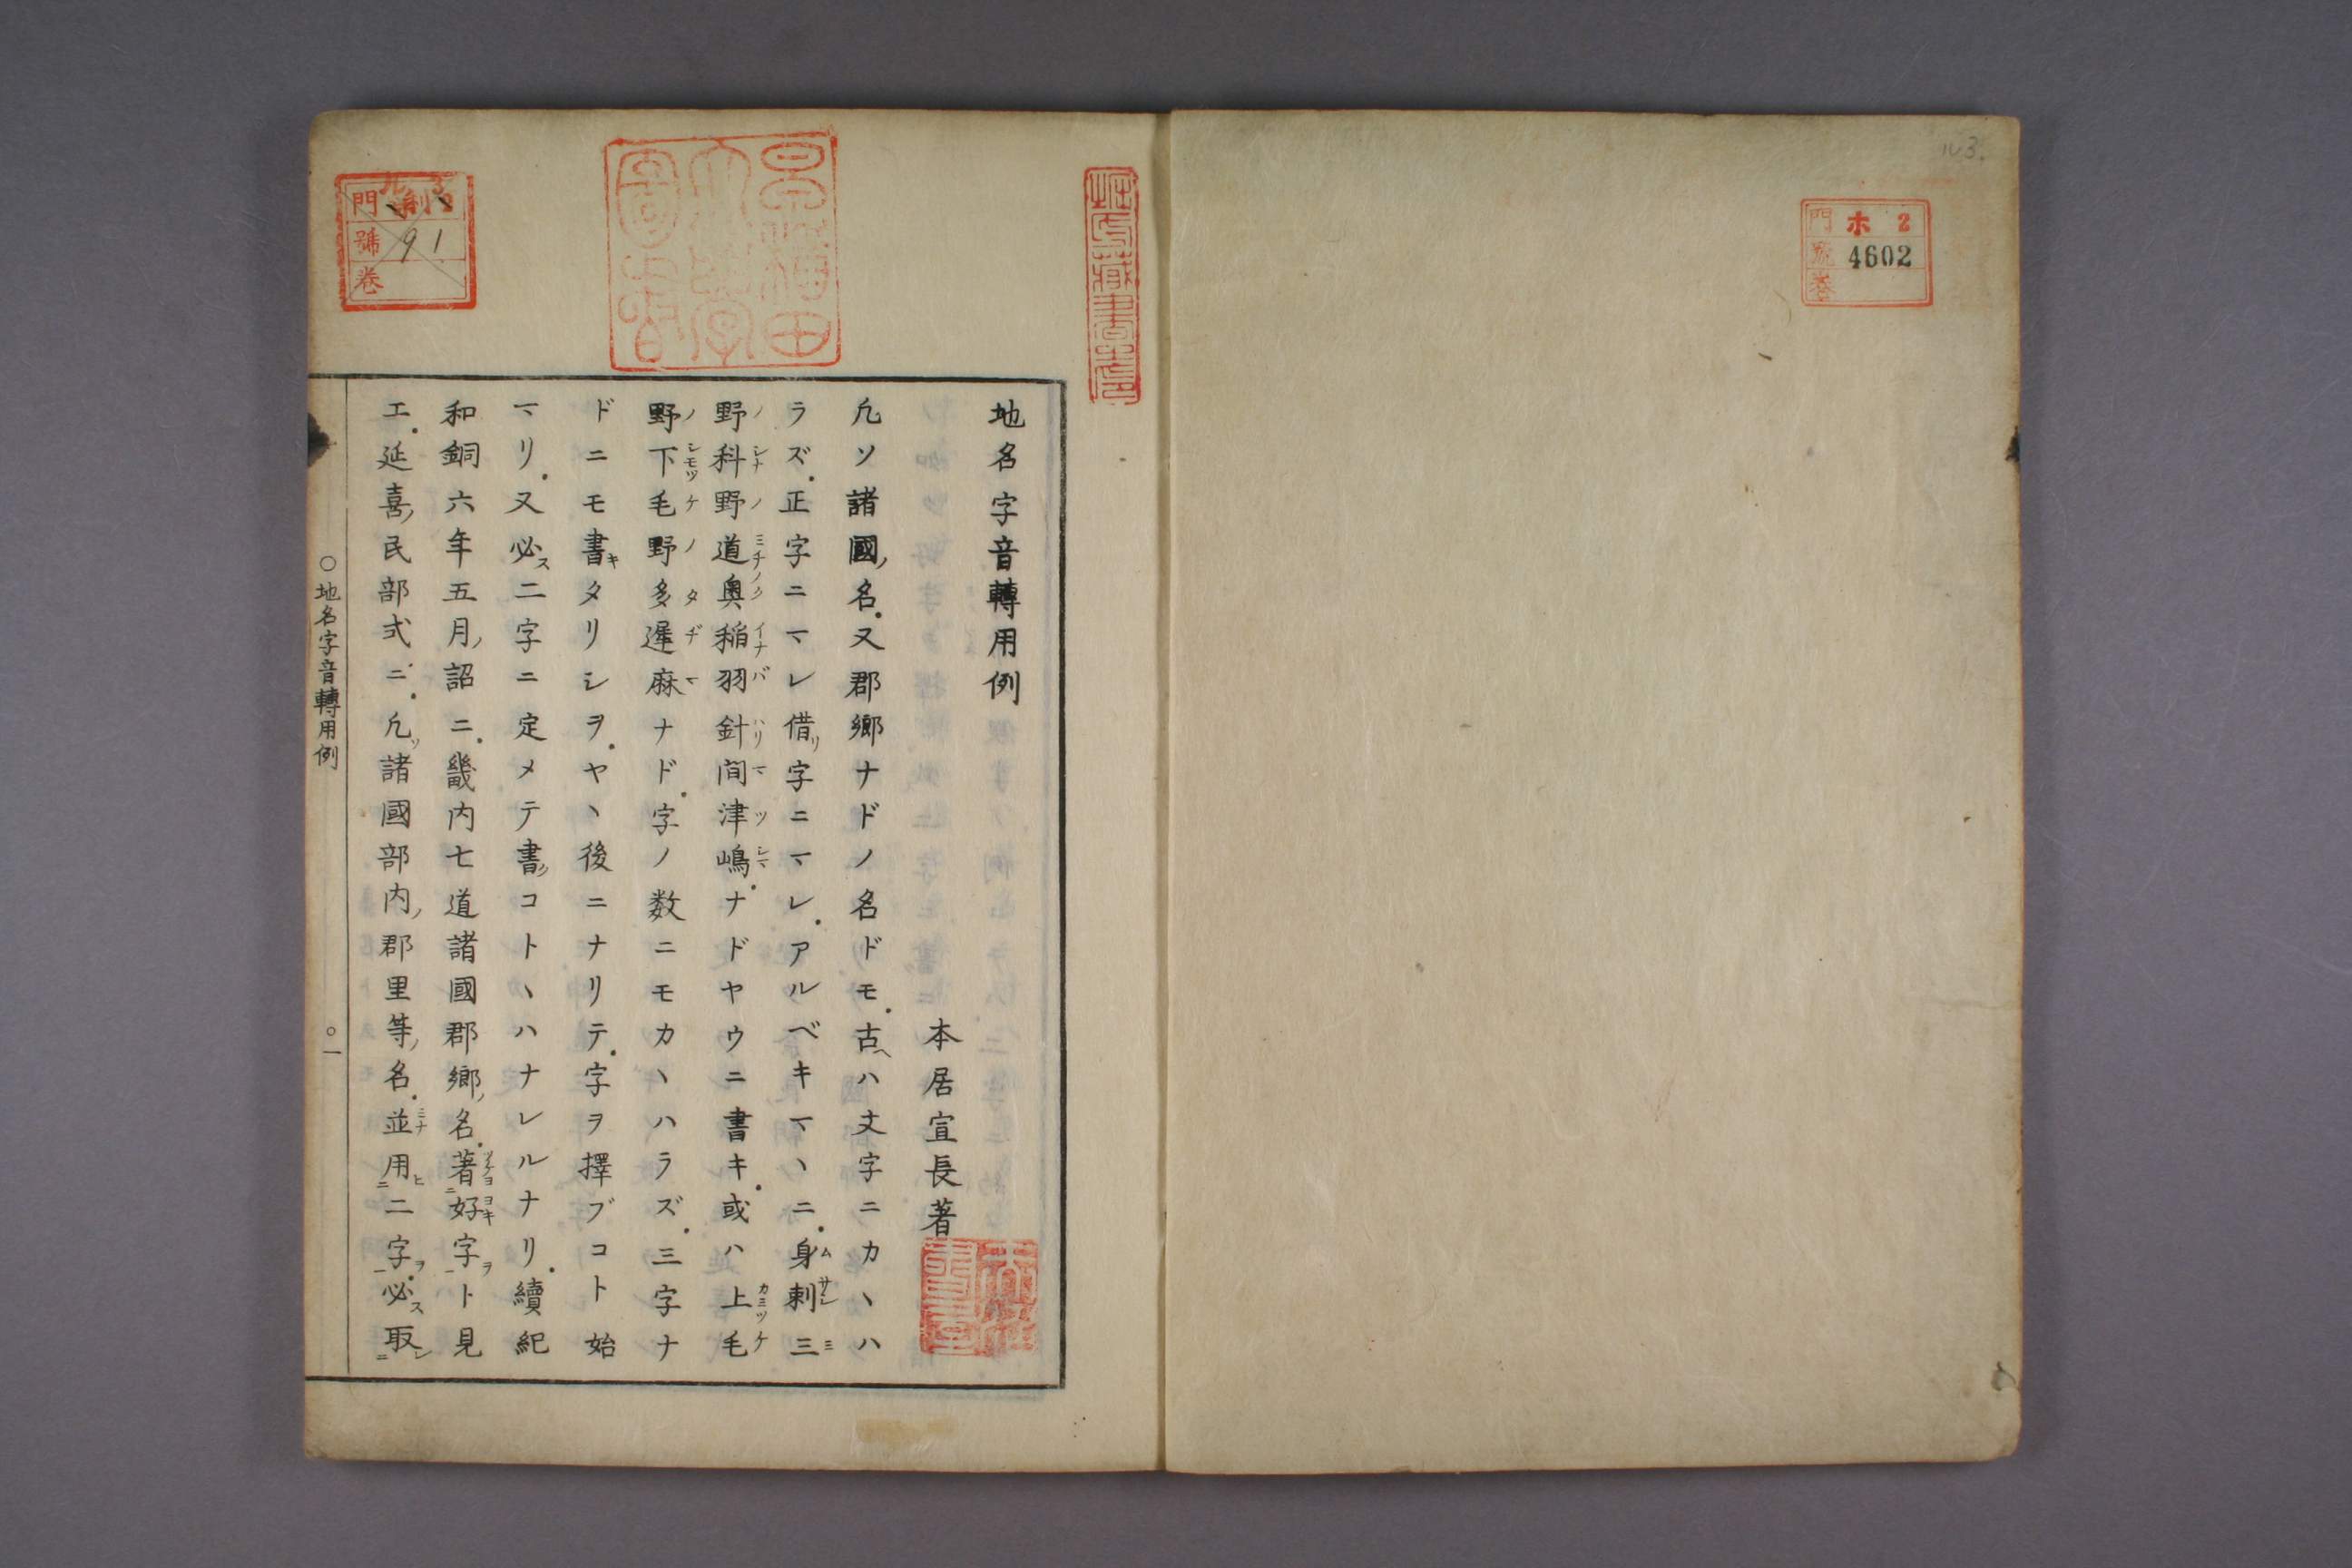 地名字音轉用例
本居宣長著
凢ソ諸國ノ名。又郡鄕ナドノ名ドモ。古ヘハ文字ニカヽハ
ラズ。正字ニマレ借リ字ニマレ。アルベキマヽニ。身刺三
野科野道奧稲羽針間津嶋。ナドヤウニ書キ。或ハ上毛
野下毛野多遲麻ナド。字ノ数ニモカヽハラズ。三字ナ
ドニモ書キタリシヲ。ヤヽ後ニナリテ。字ヲ擇ブコト始
マリ。又必ス二字ニ定メテ書クコトヽハナレルナリ。續紀
和銅六年五月ノ詔ニ。畿内七道諸國郡鄕ノ名。著好字ト見
エ。延喜ノ民部式ニ。凢ソ諸國部内ノ郡里等ノ名。並用二字。必ス取
○地名字音轉用例
○一
門
號
卷
91
門 ホ 2
號 4602
卷